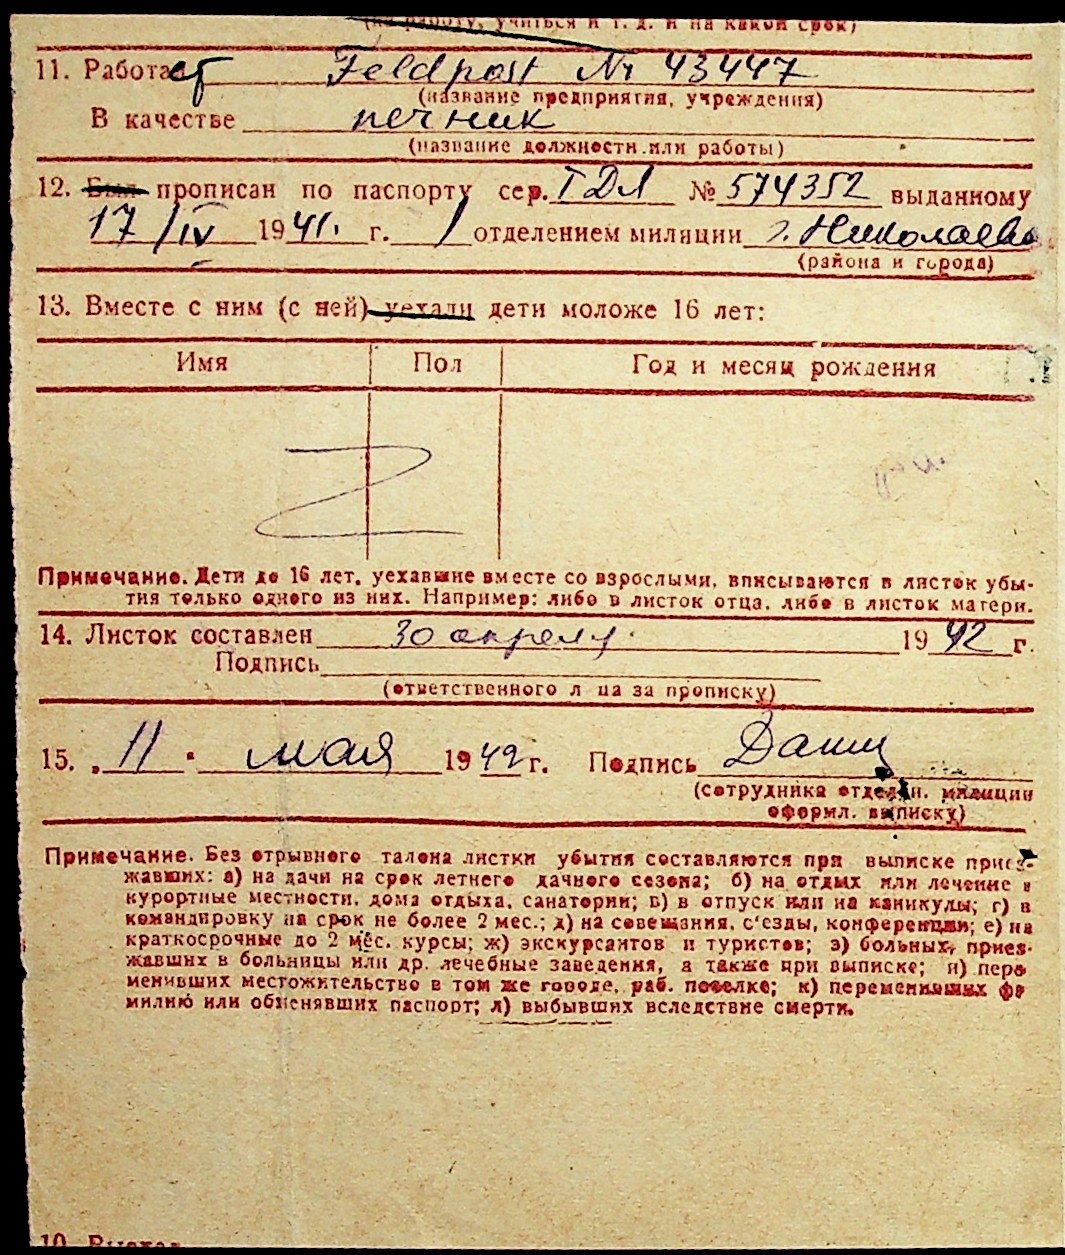 (на работу, учиться и т. д. и на какой срок)
11. Работает Feldpost Nr 43447
(название предприятия, учреждения)
В качестве печник
(название должности или работы)
12. Был прописан по паспорту сер. ТДЛ № 574352 выданному
17/IV 1941. г. 1 отделением милиции г. Николаева
(района и города)
13. Вместе с ним (с ней) уехали дети моложе 16 лет:
Имя Пол Год и месяц рождения
Z
Примечание. Дети до 16 лет, уехавшие вместе со взрослыми, вписываются в листок убы-
тия только одного из них. Например: либо в листок отца, либо в листок матери.
14. Листок составлен 30 апреля 1942 г.
Подпись
(ответственного л ца за прописку)
15. „11" мая 1942 г. Подпись
(сотрудника отделен. милиции
оформл. выписку)
Примечание. Без отрывного талона листки убытия составляются при выписке приез-
жавших: а) на дачи на срок летнего дачного сезона; б) на отдых или лечение в
курортные местности, дома отдыха, санатории; в) в отпуск или на каникулы; г) в
командировку на срок не более 2 мес.; д) на совещания, с'езды, конференции; е) на
краткосрочные до 2 мес. курсы; ж) экскурсантов и туристов; з) больных, приез-
жавших в больницы или др. лечебные заведения, а также при выписке; и) пере
менивших местожительство в том же городе, раб. поселке; к) переменивших фа
милию или обменявших паспорт; л) выбывших вследствие смерти.
10. Выехал